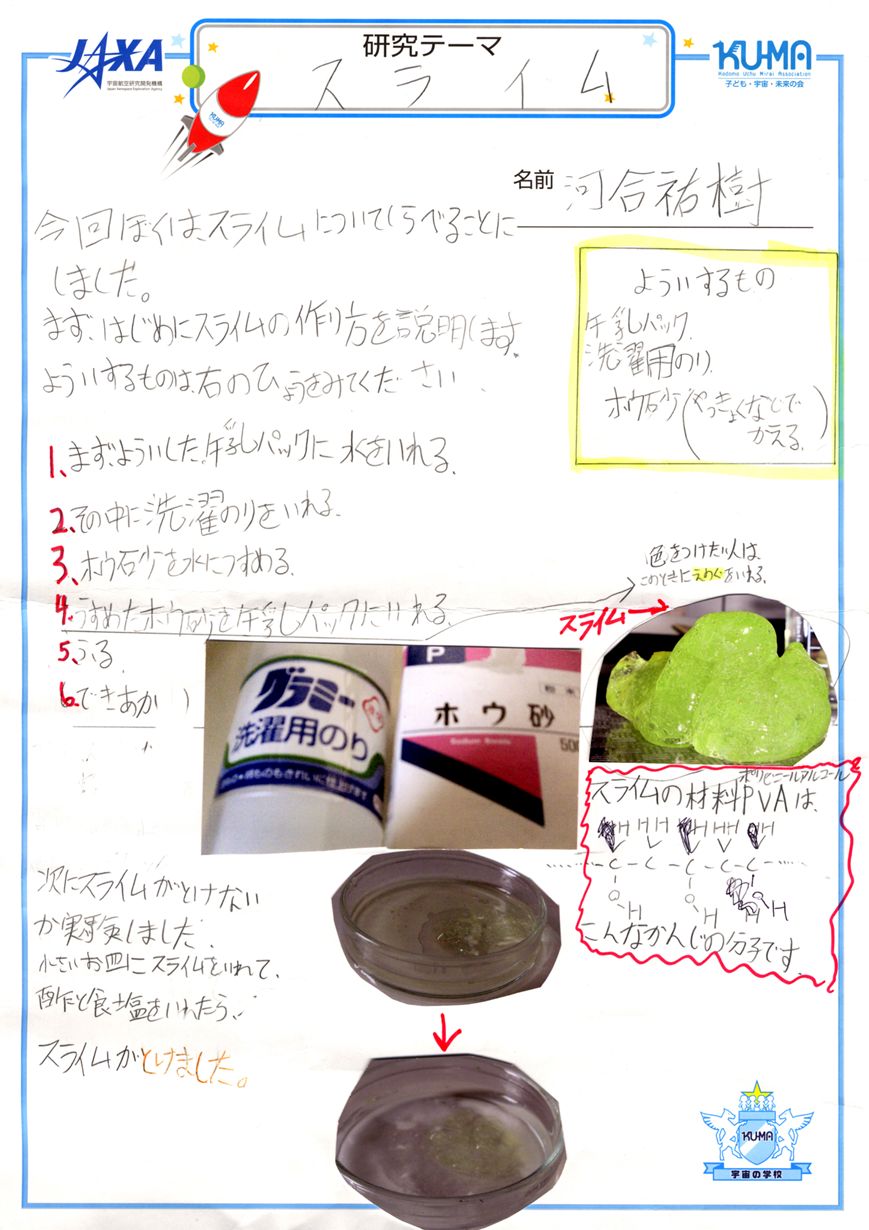 JAXA
宇宙航空研究開発機構
Japan Aerospace Exploration Agency
研究テーマ
スライム
KU-MA
Kodomo Uchu Mirai Association
子ども・宇宙・未来の会
KU-MA
名前 河合祐樹
今回ぼくは、スライムについてしらべることに
しました。
まず、はじめにスライムの作り方を説明します。
よういするものは右のひょうをみてください。
よういするもの
牛乳パック
洗濯用のり
ホウ砂(やっきょくなどで
かえる。)
1、まず、よういした牛乳パックに水をいれる。
2、その中に洗濯のりをいれる。
3、ホウ砂を水にうすめる。
4、うすめたホウ砂を牛乳パックにいれる。
色をつけたい人は、
このときにえのぐをいれる。
5、ふる
6、できあがり
スライム→
グラミー
洗濯用のり
P
ホウ砂
Sodium Borate
500
スライムの材料PVAは、
ポリビニールアルコール
H H H H H H
C C C C C
O O O
H H H
こんなかんじの分子です。
次にスライムがとけない
か実験しました。
小さいお皿にスライムをいれて、
酢と食塩をいれたら、
スライムがとけました。
KU-MA
宇宙の学校